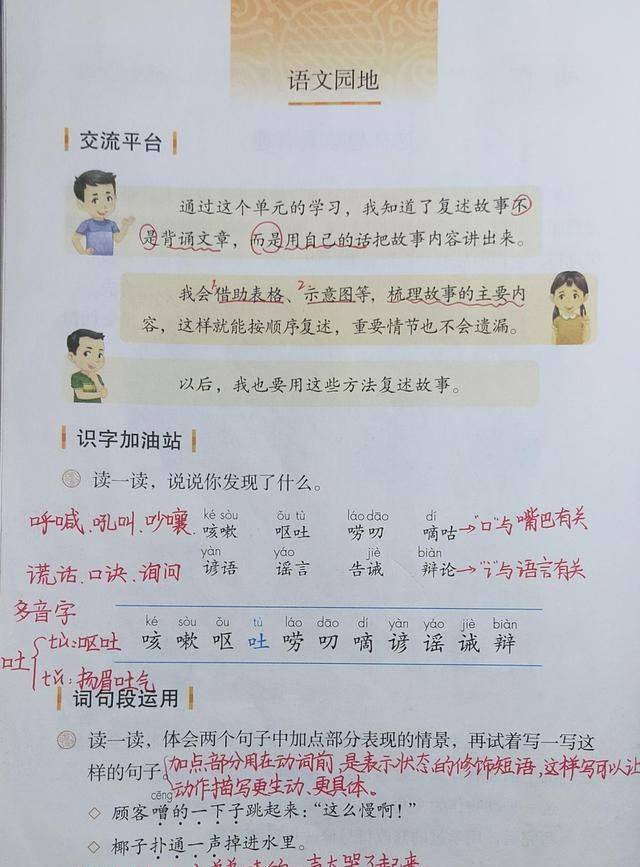 语文园地
交流平台
通过这个单元的学习，我知道了复述故事不
是背诵文章，而是用自己的话把故事内容讲出来。
我会1借助表格、2示意图等，梳理故事的主要内
容，这样就能按顺序复述，重要情节也不会遗漏。
以后，我也要用这些方法复述故事。
识字加油站
读一读，说说你发现了什么。
ké sòu ǒu tù láo dāo dí
呼喊、吼叫、吵嚷、咳嗽 呕吐 唠叨 嘀咕→"口"与嘴巴有关
yàn yáo jiè biàn
谎话、口诀、询问 谚语 谣言 告诫 辩论→"讠"与语言有关
多音字
ké sòu ǒu tù láo dāo dí yàn yáo jiè biàn
咳 嗽 呕 吐 唠 叨 嘀 谚 谣 诫 辩
吐
tù：呕吐
tǔ：扬眉吐气
词句段运用
读一读，体会两个句子中加点部分表现的情景，再试着写一写这
样的句子。
加点部分用在动词前，是表示状态的修饰短语，这样写可以让
动作描写更生动、更具体。
cēng
◇ 顾客噌的一下子跳起来：“这么慢啊！”
◇ 椰子扑通一声掉进水里。